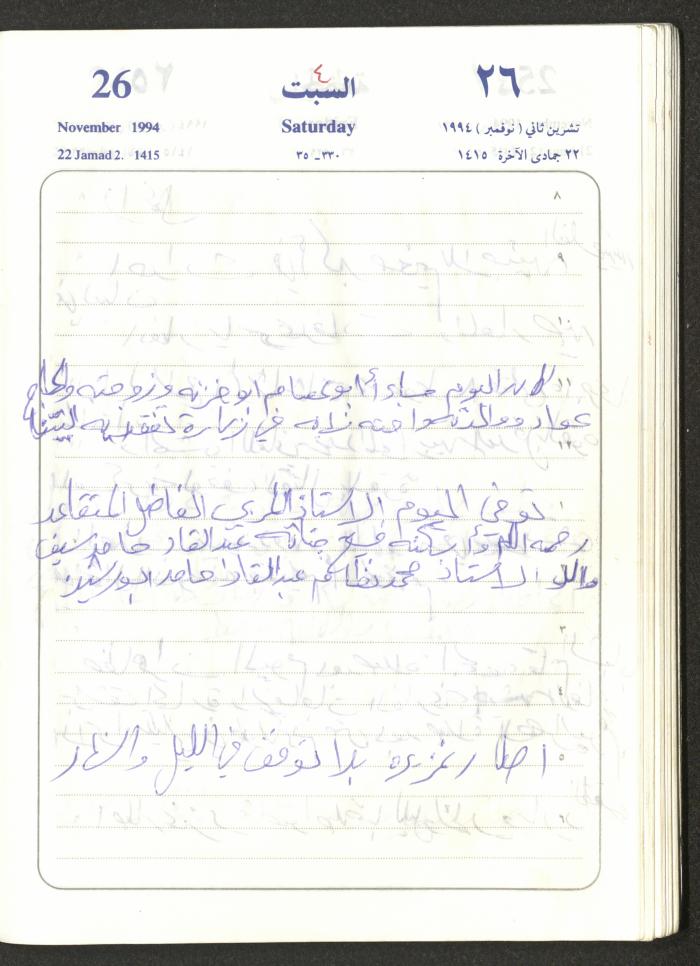 26 السبت ٤ ٢٦
November 1994 Saturday تشرين ثاني ( نوفمبر ) ١٩٩٤
22 Jamad 2. 1415 ٣٣٠-٣٥ ٢٢ جمادى الآخرة ١٤١٥
٨
٩
١٠
١١
اليوم مساء أبو عصام أبو غزنه وزوجته والحاج
عماد ووالدته في زيارة
١٢
١
توفي اليوم الاستاذ المربي الفاضل المتقاعد
رحمه الله وأسكنه فسيح جناته عبدالقادر حامد
والد الاستاذ محمد عبدالقادر حامد
٣
٤
٥
امطار غزيرة بلا توقف في الليل والنهار
٦